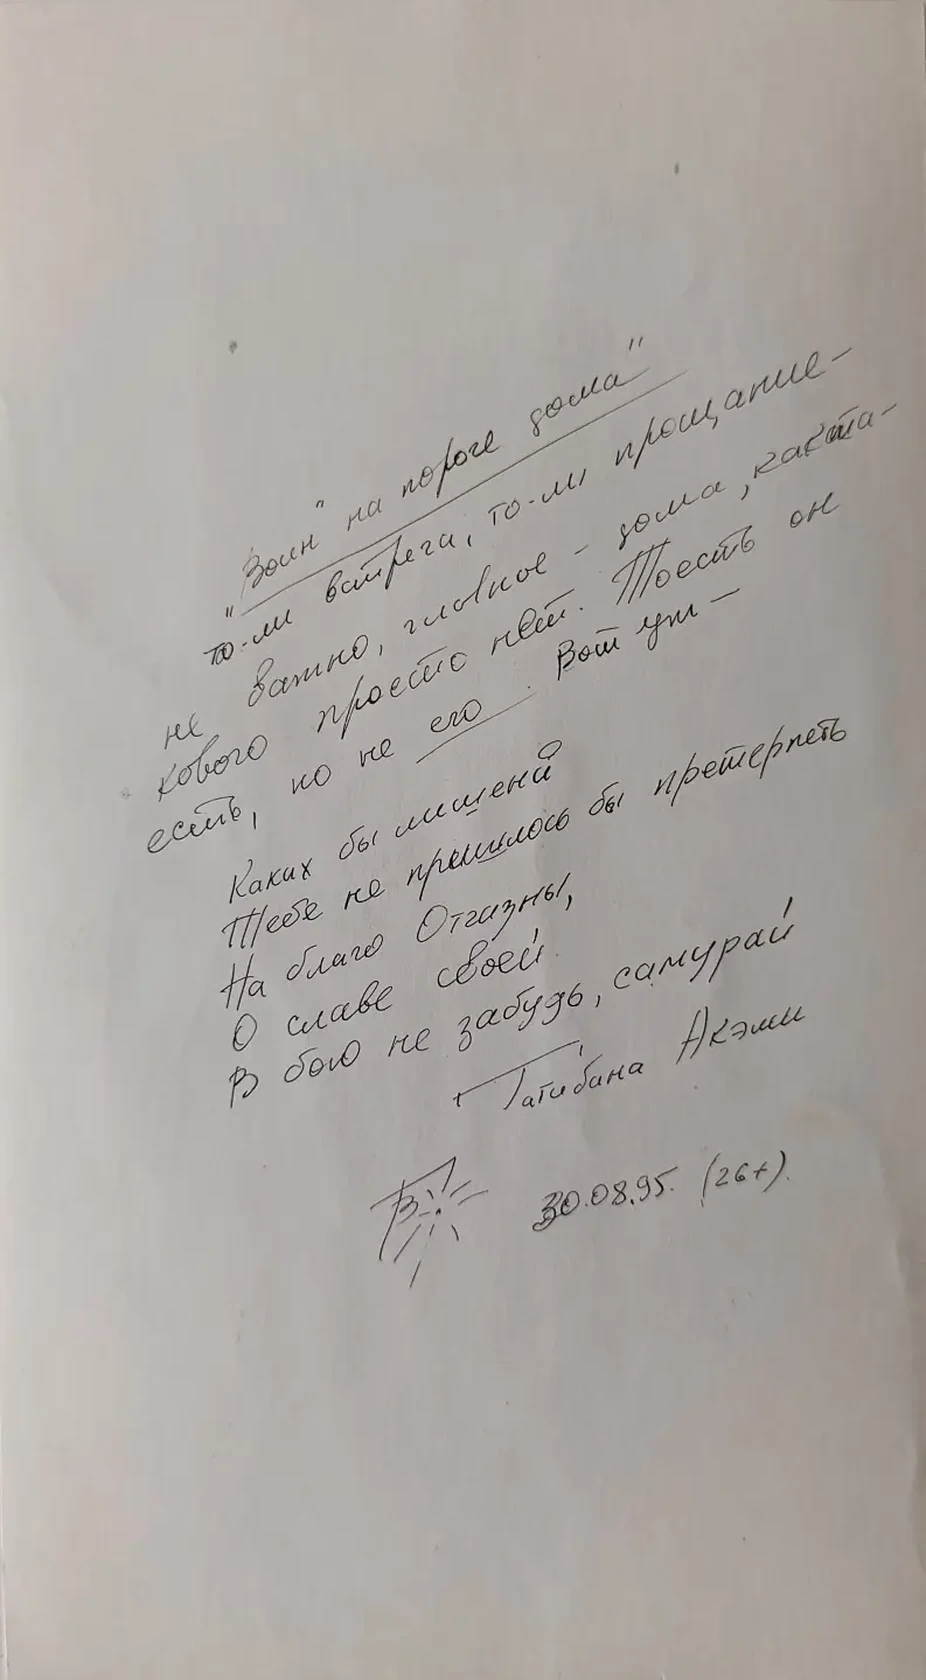 "Воин" на пороге дома"
то-ли встреча, то-ли прощание -
не важно, главное - дома, как та-
кового просто нет. Тоесть он
есть, но не его. Вот уж -
Каких бы лишений
Тебе не пришлось бы претерпеть
На благо Отчизны,
О славе своей
В бою не забудь, самурай
Татибана Акэми
30.08.95. (26+).